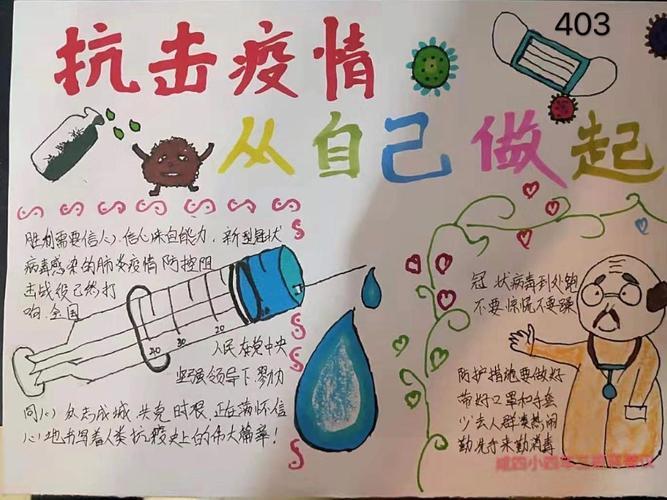 403
抗击疫情
从自己做起
胜利需要信心,信心来自能力,新型冠状
病毒感染的肺炎疫情防控阻
击战役已然打
响.全国
40 30 20
人民在党中央
坚强领导下,勠力
同心 众志成城 共克时艰,正在满怀信
心地书写着人类抗疫史上的伟大篇章!
冠状病毒到处跑
不要惊慌不要躁
防护措施要做好
带好口罩和手套
少去人群凑热闹
勤洗手来勤消毒
咸四小四年